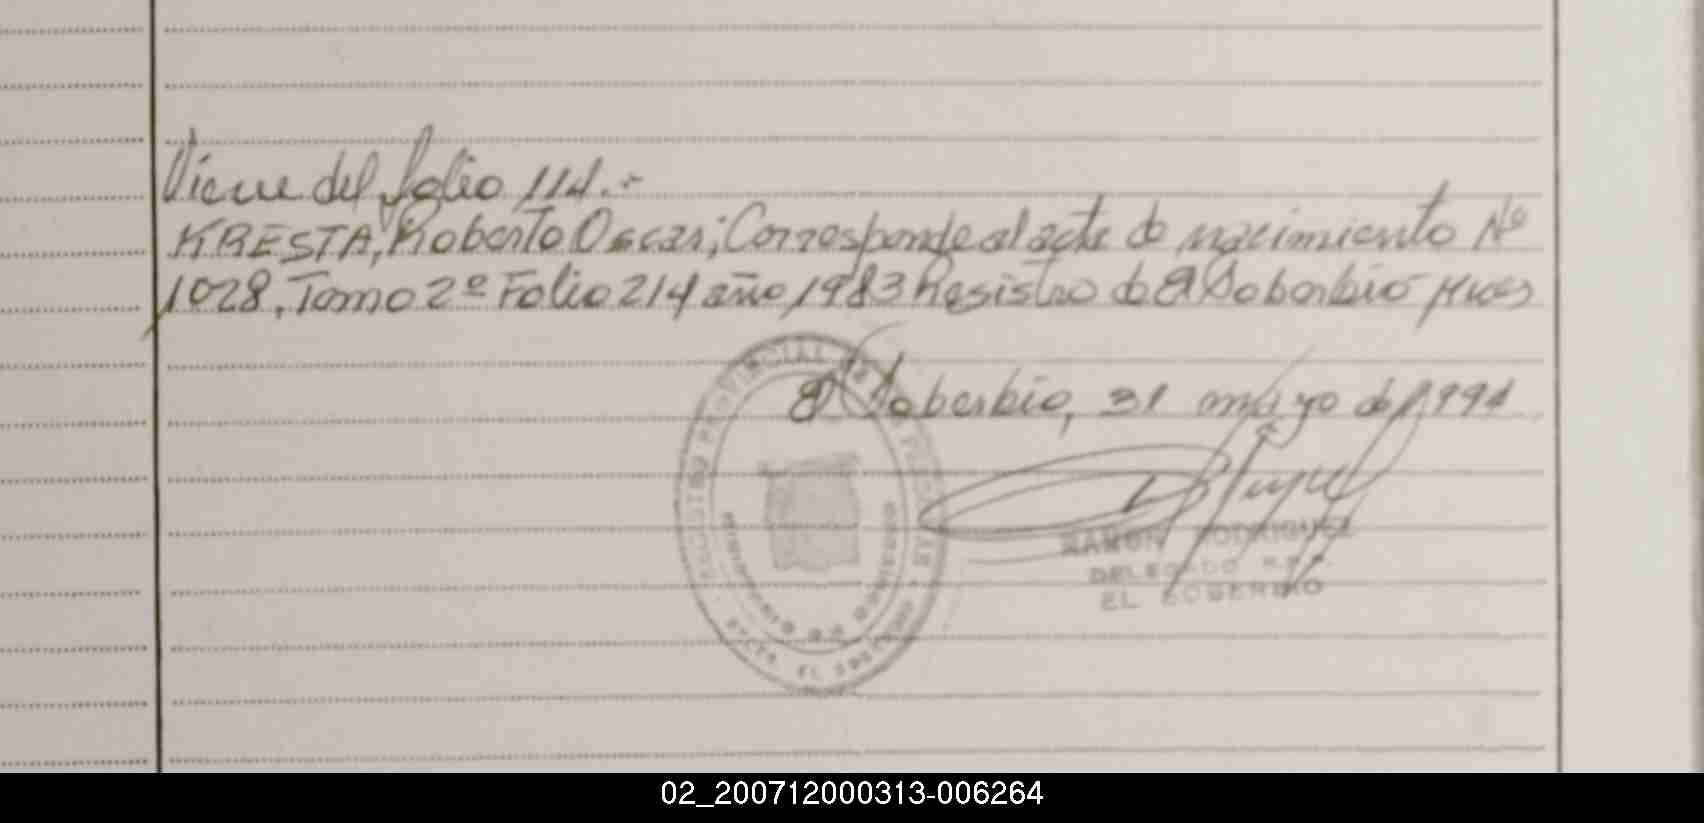 Viene del folio 114.-
KRESTA, Roberto Oscar; Corresponde al acta de nacimiento Nº
1028, Tomo 2º Folio 214 año 1983 Registro de El Soberbio Mnes
El Soberbio, 31 mayo de 1994
RAMON RODRIGUEZ
DELEGADO R.P.
EL SOBERBIO
REGISTRO PROVINCIAL DE LAS PERSONAS
PROVINCIA DE MISIONES
EL SOBERBIO
02_200712000313-006264